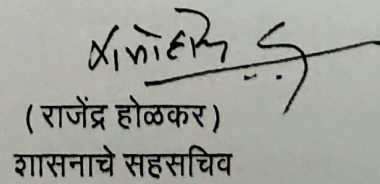 (राजेंद्र होळकर)
शासनाचे सहसचिव